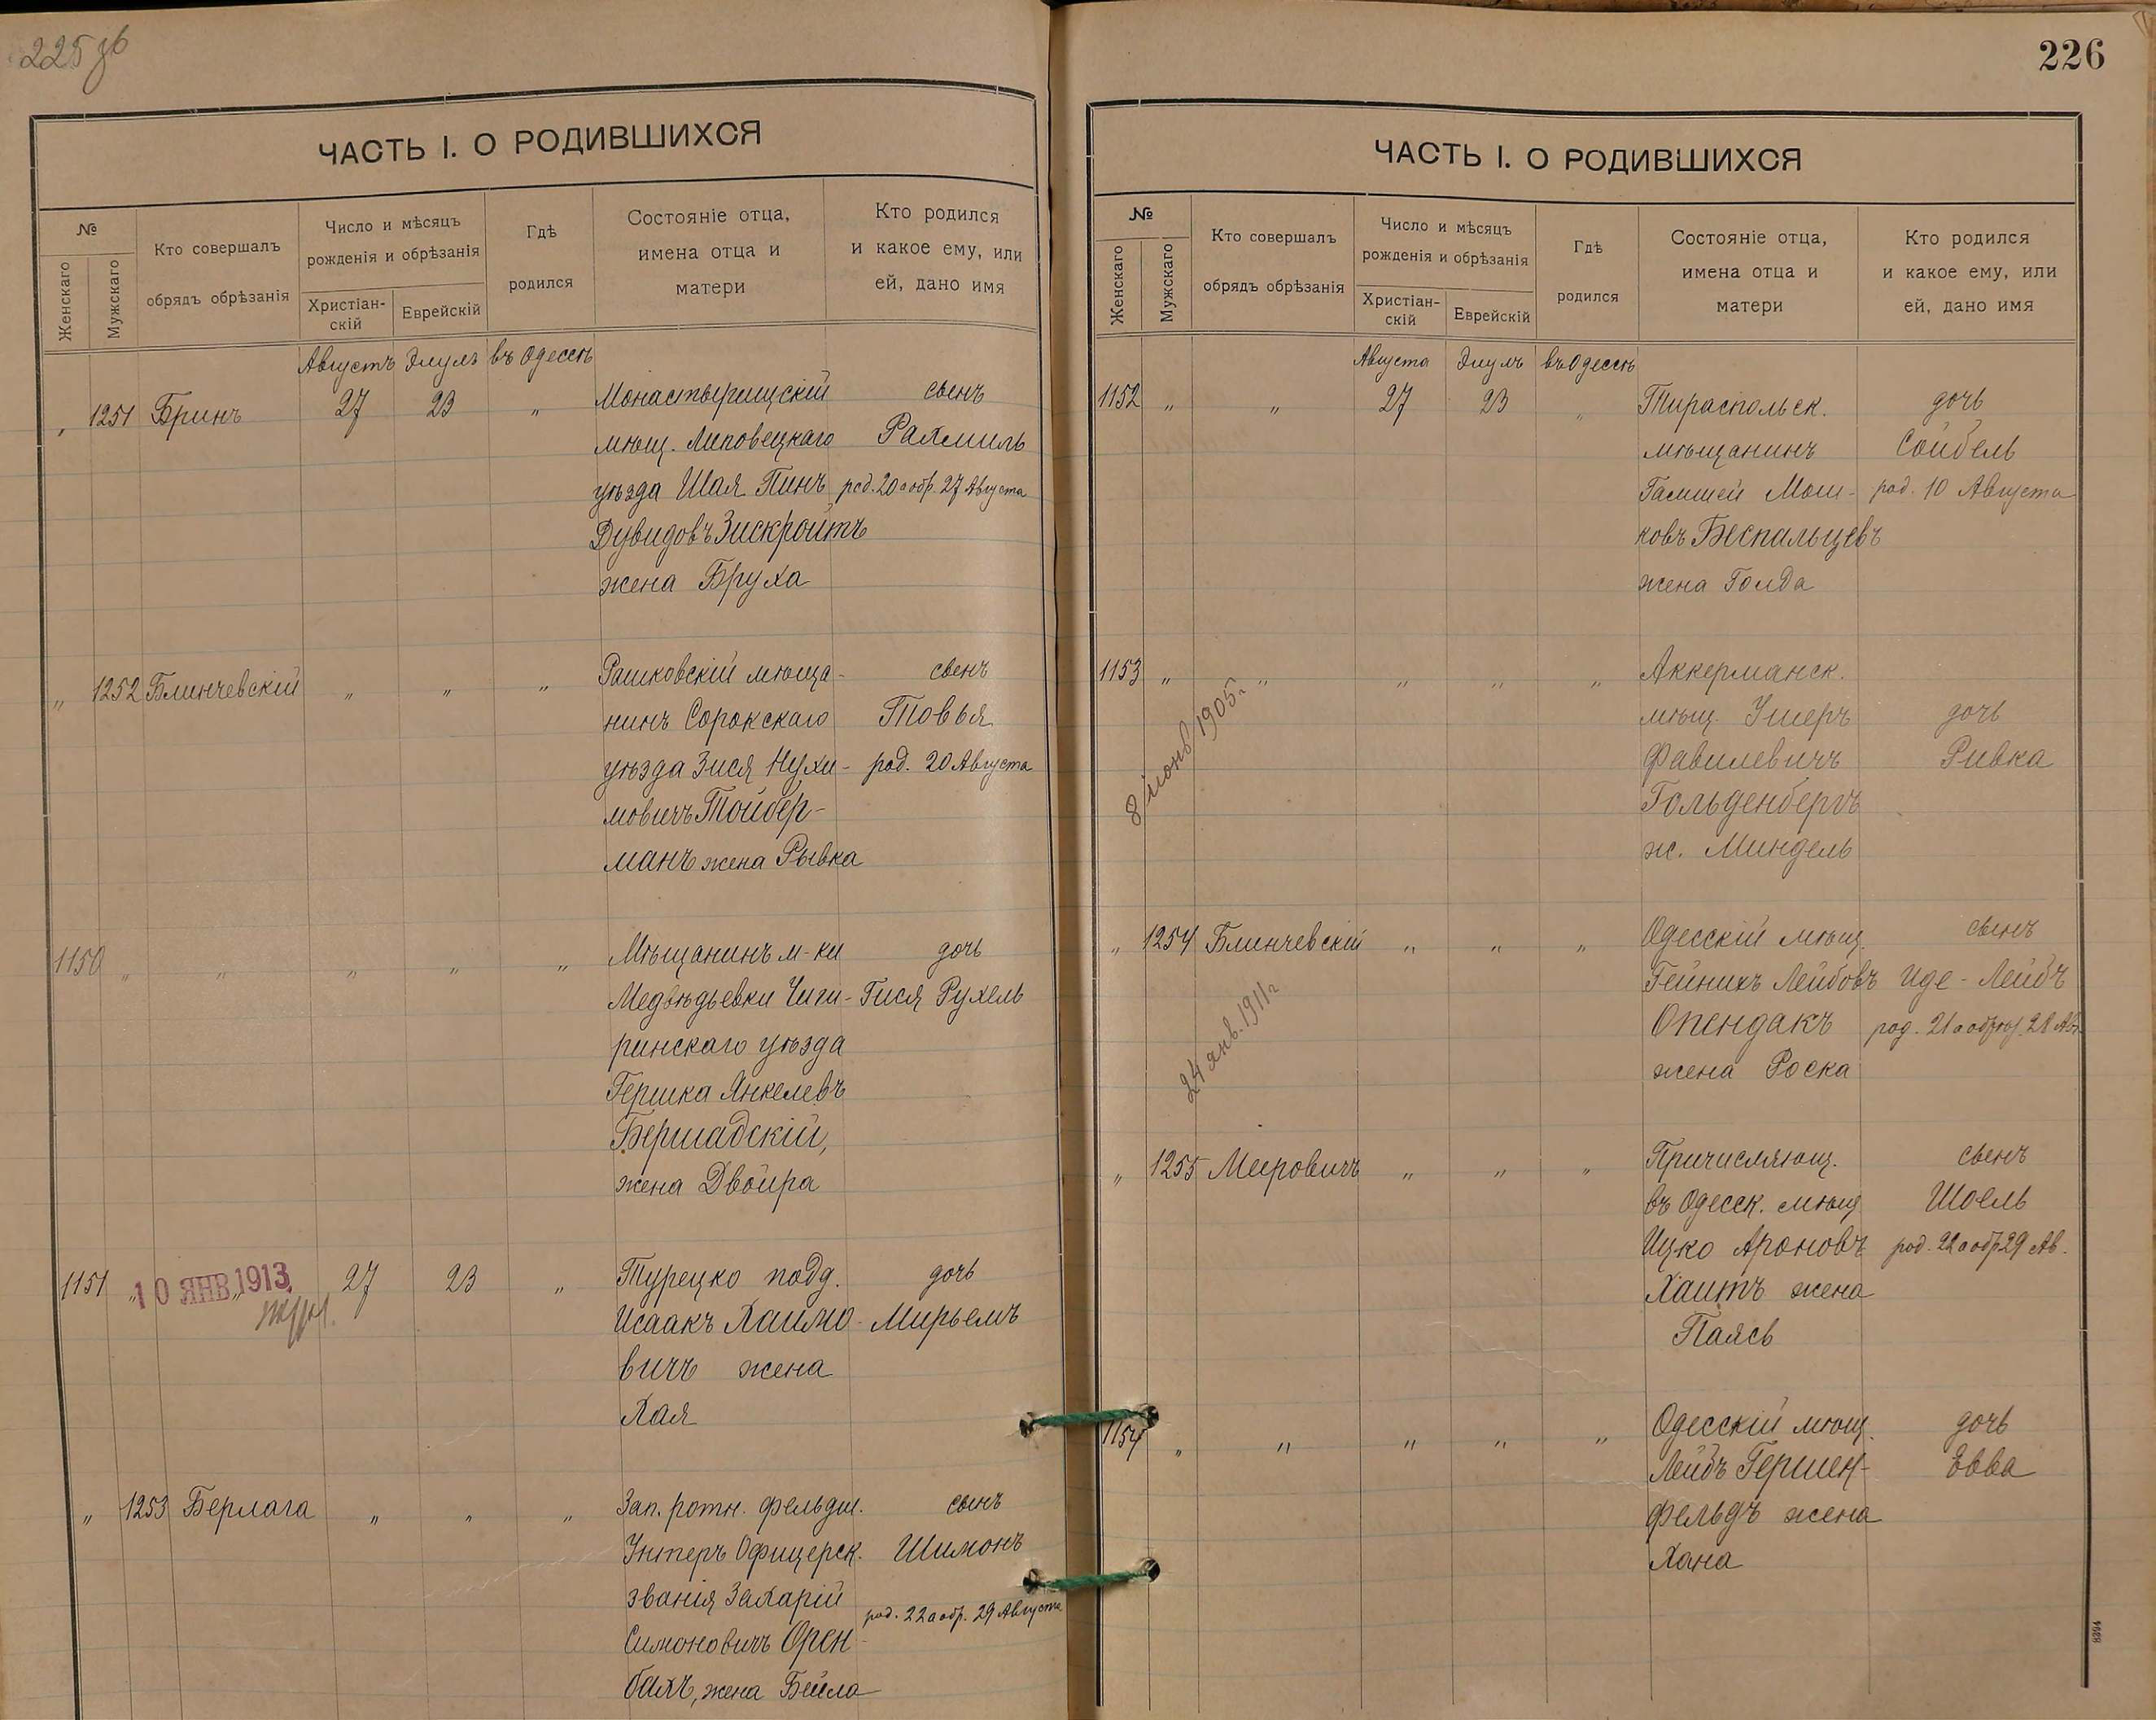 225 об
ЧАСТЬ I. О РОДИВШИХСЯ
№
Женскаго
Мужскаго
Кто совершалъ
обрядъ обрѣзанія
Число и мѣсяцъ
рожденія и обрѣзанія
Христіан-
скій
Еврейскій
Гдѣ
родился
Состояніе отца,
имена отца и
матери
Кто родился
и какое ему, или
ей, дано имя
Августъ Элулъ въ Одессѣ
„ 1251 Бринъ 27 23 „ Монастырищскій сынъ
мѣщ. Липовецкаго Рахмиль
уѣзда Шая Пинъ род. 20 а обр. 27 Августа
Дувидовъ Зискройтъ
жена Бруха
„ 1252 Блинчевскій „ „ „ Рашковскій мѣща- сынъ
нинъ Сорокскаго Товья
уѣзда Зися Нухи- род. 20 Августа
мовичъ Тойбер-
манъ жена Рывка
1150 „ „ „ „ „ Мѣщанинъ м-ки дочь
Медвѣдьевки Чиги- Гися Рухель
ринскаго уѣзда
Гершка Янкелевъ
Бершадскій,
жена Двойра
1151 „ „ 10 ЯНВ. 1913 27 23 „ Турецко подд. дочь
Исаакъ Хаимо- Мирьемъ
вичъ жена
Хая
„ 1253 Берлага „ „ „ Зап. ротн. фельдш. сынъ
Унтеръ Офицерск. Шимонъ
званія Захарій
род. 22 а обр. 29 Августа
Симоновичъ Орен-
бахъ, жена Бейла
226
ЧАСТЬ I. О РОДИВШИХСЯ
№
Женскаго
Мужскаго
Кто совершалъ
обрядъ обрѣзанія
Число и мѣсяцъ
рожденія и обрѣзанія
Христіан-
скій
Еврейскій
Гдѣ
родился
Состояніе отца,
имена отца и
матери
Кто родился
и какое ему, или
ей, дано имя
Августа Элулъ въ Одессѣ
1152 „ „ 27 23 „ Тираспольск. дочь
мѣщанинъ Сойбель
Гамшей Мош- род. 10 Августа
ковъ Беспальцевъ
жена Голда
1153 „ „ „ „ „ Аккерманск.
мѣщ. Ушеръ дочь
Фавилевичъ Ривка
Гольденбергъ
ж. Миндель
8 іюнь 1905 г.
„ 1254 Блинчевскій „ „ „ Одесскій мѣщ. сынъ
Гейнихъ Лейбовъ Иде-Лейбъ
Опендакъ род. 21 а обрѣз. 28 Авг.
жена Роска
24 янв. 1911 г
„ 1255 Меировичъ „ „ „ Причисляющ. сынъ
въ Одесск. мѣщ Шоель
Ицко Ароновъ род. 22 а обр 29 Ав.
Хаитъ жена
Паясь
1154 „ „ „ „ „ Одесскій мѣщ. дочь
Лейбъ Гершен- Евва
фельдъ жена
Хана